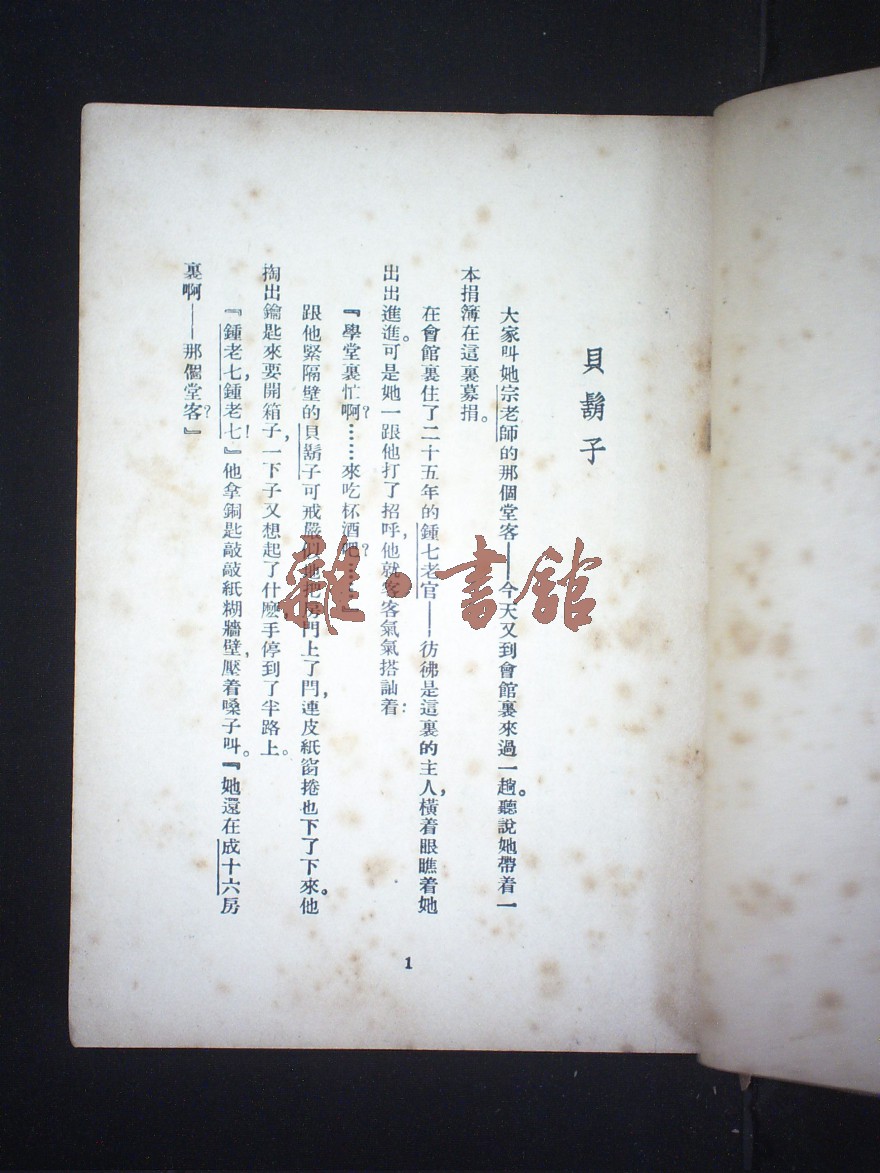 貝鬍子
大家叫她宗老師的那個堂客——今天又到會館裏來過一趟。聽說她帶着一
本捐簿在這裏募捐。
在會館裏住了二十五年的鍾七老官——彷彿是這裏的主人，橫着眼瞧着她
出出進進。可是她一跟他打了招呼，他就客客氣氣搭訕着：
『學堂裏忙啊？……來吃杯酒吧？……』
跟他緊隔壁的貝鬍子可戒嚴似地把房門上了閂，連皮紙窗捲也下了下來。他
掏出鑰匙來要開箱子，一下子又想起了什麽，手停到了半路上。
『鍾老七，鍾老七！』他拿銅匙敲敲紙糊牆壁，壓着嗓子叫。『她還在成十六房
裏啊——那個堂客？』
1
雜·書館